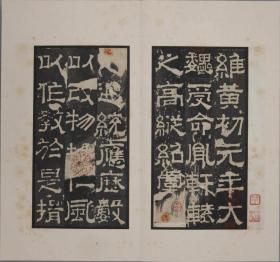 維黃初元年大
魏受命胤軒轅
之高縱紹虞
統應曆數
以改物揚仁風
以作教於是揖